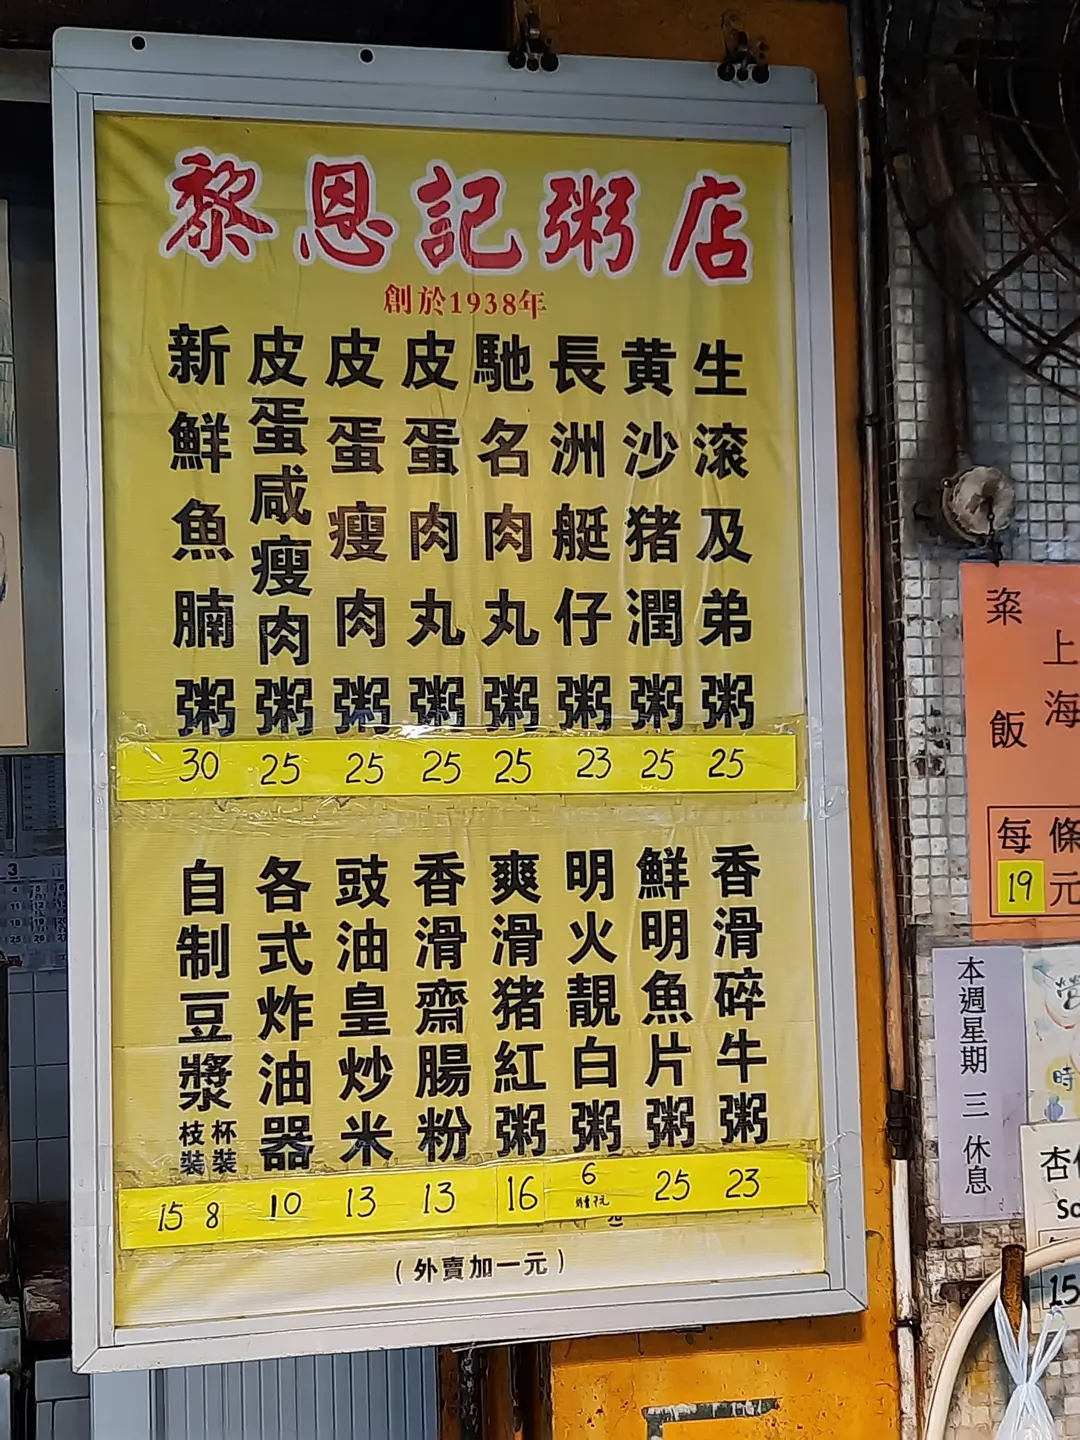 黎恩記粥店
創於1938年
生滚及弟粥 25
黄沙猪潤粥 25
長洲艇仔粥 23
馳名肉丸粥 25
皮蛋肉丸粥 25
皮蛋瘦肉粥 25
皮蛋咸瘦肉粥 25
新鮮魚腩粥 30
香滑碎牛粥 23
鮮明魚片粥 25
明火靚白粥 6
爽滑猪紅粥 16
香滑齋腸粉 13
豉油皇炒米粉 13
各式炸油器 10
自制豆漿 杯裝 8 枝裝 15
(外賣加一元)
上海
粢飯
每條
19元
本週星期三休息
時
15